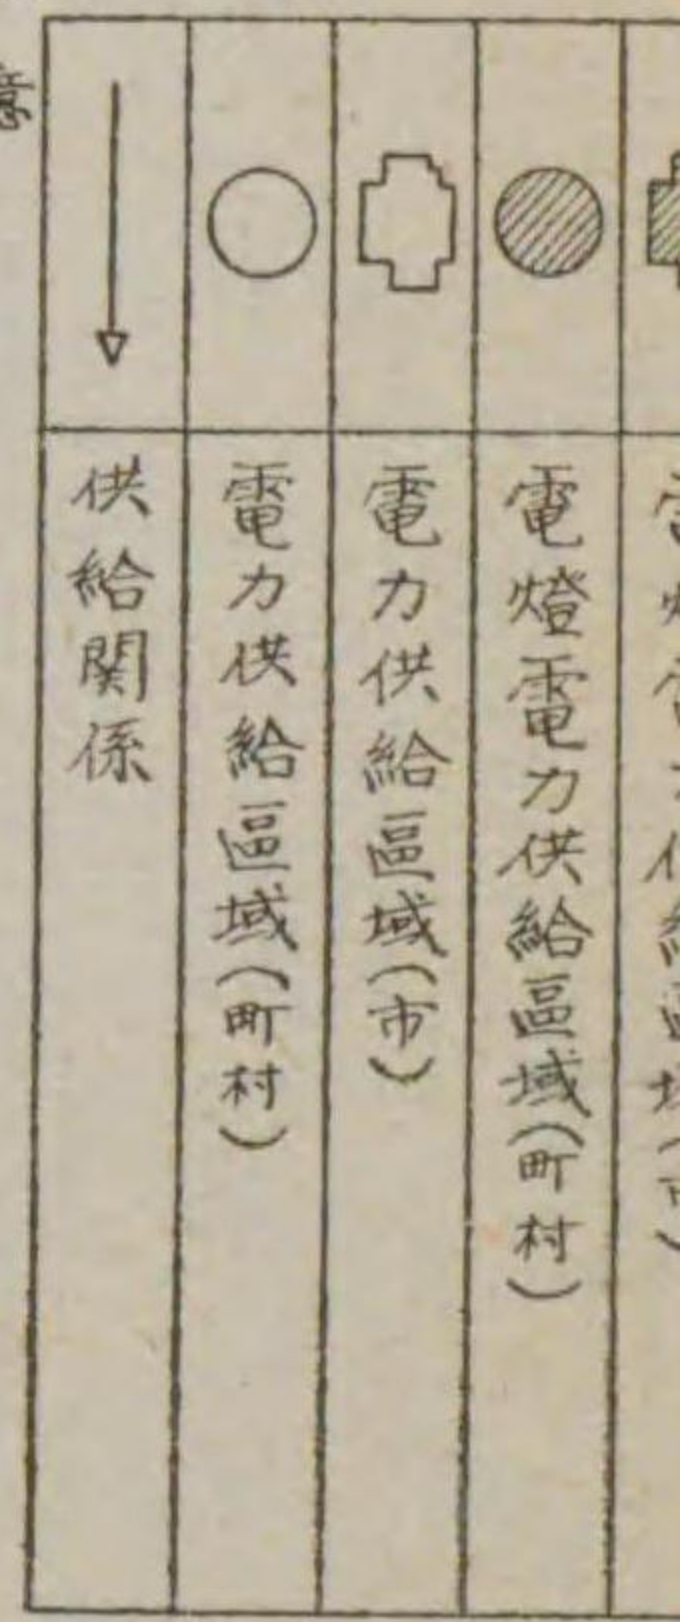 電燈電力供給區域(町村)
電力供給區域(市)
電力供給區域(町村)
供給関係
意